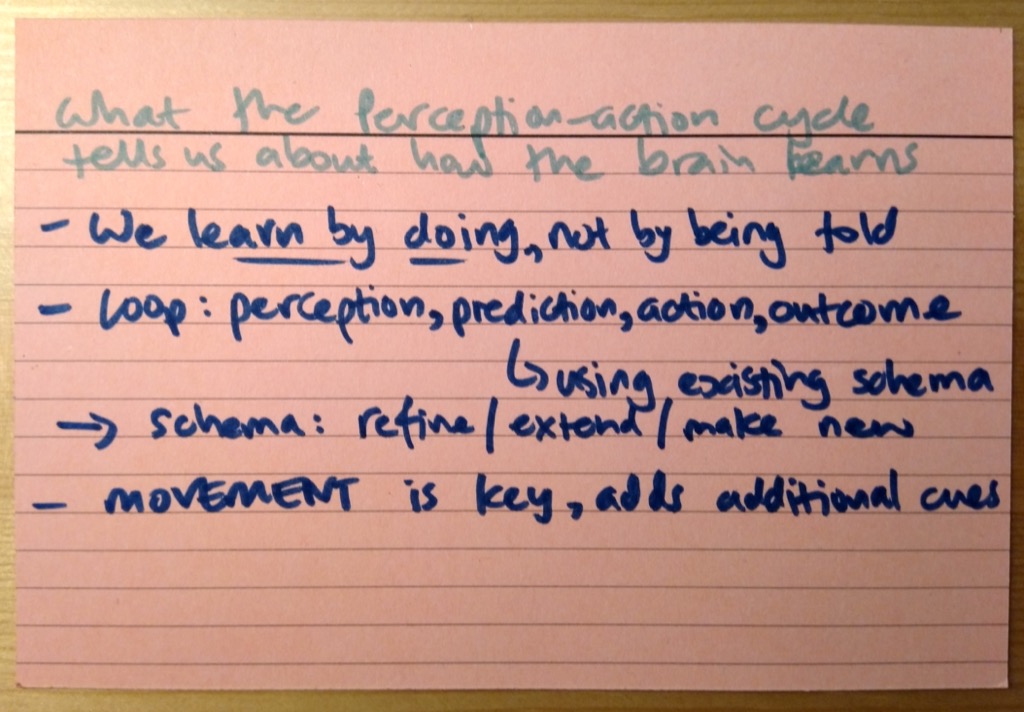 What the Perception-action cycle
tells us about how the brain learns
- We learn by doing, not by being told
- Loop: perception, prediction, action, outcome
↳ using existing schema
→ schema: refine/extend/make new
- MOVEMENT is key, adds additional cues